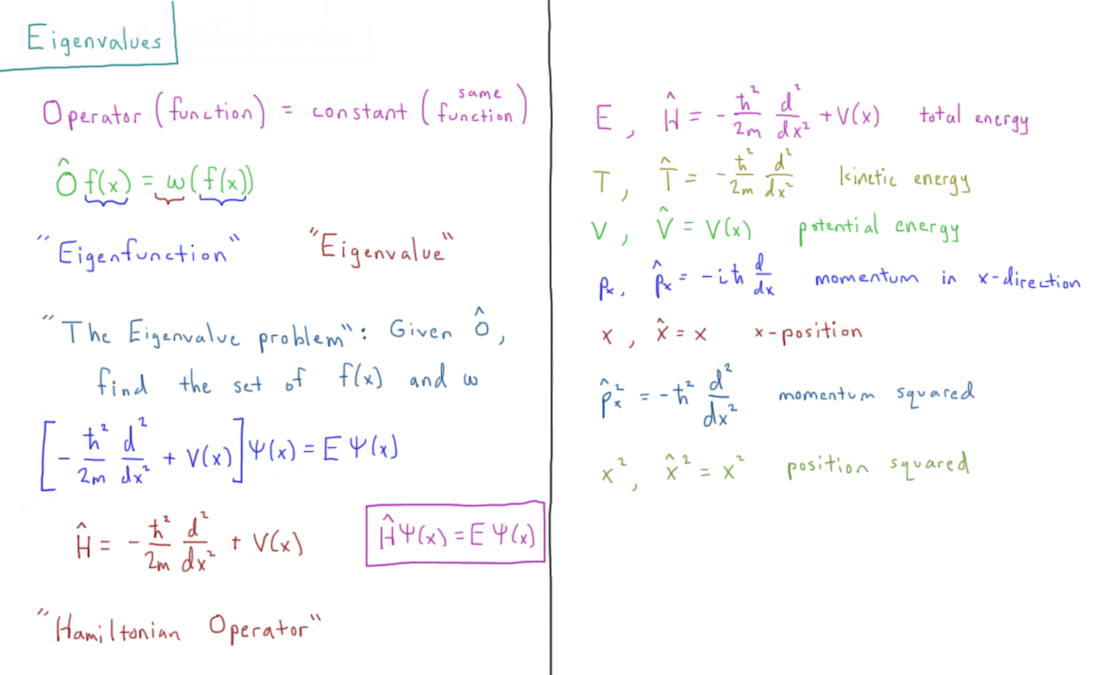 Eigenvalues
Operator (function) = constant (same function)
Ô f(x) = ω(f(x))
"Eigenfunction" "Eigenvalue"
"The Eigenvalue problem": Given Ô,
find the set of f(x) and ω
[-ħ²/2m d²/dx² + V(x)]Ψ(x) = E Ψ(x)
Ĥ = -ħ²/2m d²/dx² + V(x)
ĤΨ(x) = E Ψ(x)
"Hamiltonian Operator"
E, Ĥ = -ħ²/2m d²/dx² + V(x) total energy
T, T̂ = -ħ²/2m d²/dx² kinetic energy
V, V̂ = V(x) potential energy
pₓ, p̂ₓ = -iħ d/dx momentum in x-direction
x, x̂ = x x-position
p̂ₓ² = -ħ² d²/dx² momentum squared
x², x̂² = x² position squared